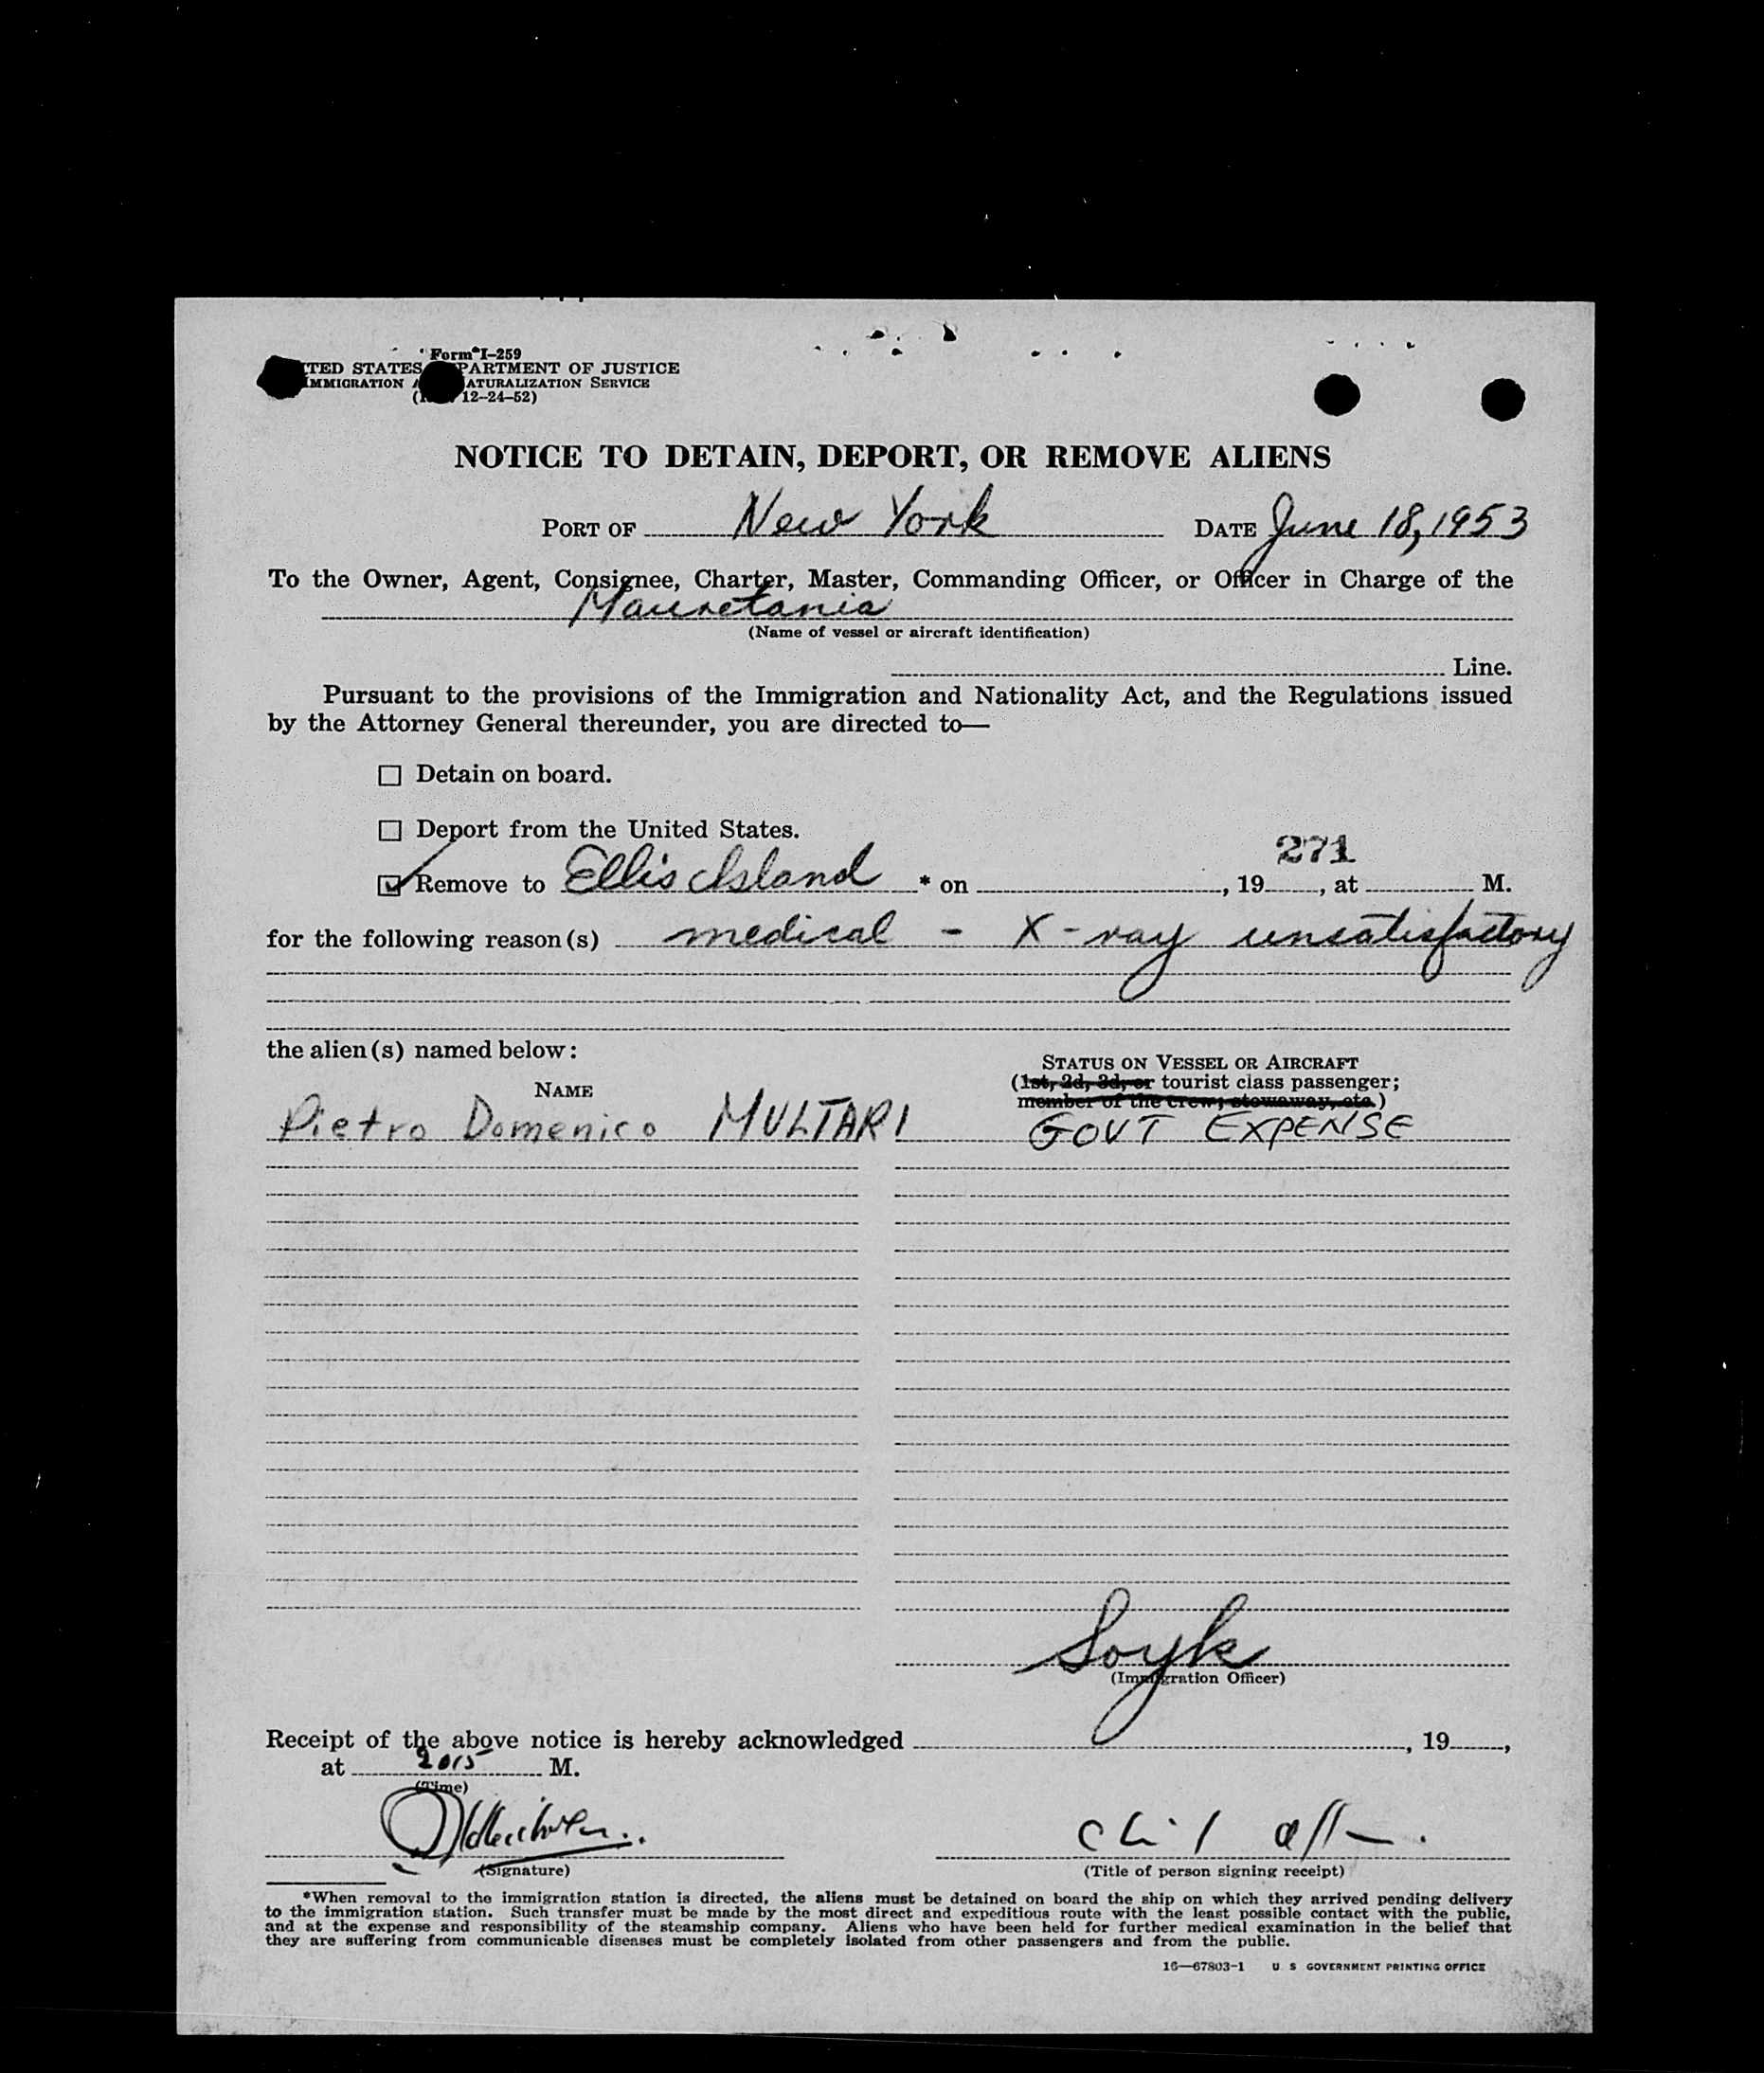 Form I-259
TED STATES PARTMENT OF JUSTICE
IMMIGRATION A ATURALIZATION SERVICE
( 12-24-52)
NOTICE TO DETAIN, DEPORT, OR REMOVE ALIENS
PORT OF New York DATE June 18, 1953
To the Owner, Agent, Consignee, Charter, Master, Commanding Officer, or Officer in Charge of the
Mauretania
(Name of vessel or aircraft identification)
Line.
Pursuant to the provisions of the Immigration and Nationality Act, and the Regulations issued
by the Attorney General thereunder, you are directed to—
Detain on board.
Deport from the United States.
271
Remove to Ellis Island * on , 19 , at M.
for the following reason(s) medical - X-ray unsatisfactory
the alien(s) named below:
STATUS ON VESSEL OR AIRCRAFT
NAME
(1st, 2d, 3d, or tourist class passenger;
member of the crew; stowaway, etc.)
Pietro Domenico MULTARI GOVT EXPENSE
Soyk
(Immigration Officer)
Receipt of the above notice is hereby acknowledged , 19 ,
at 2015 M.
(Time)
(Signature)
(Title of person signing receipt)
*When removal to the immigration station is directed, the aliens must be detained on board the ship on which they arrived pending delivery
to the immigration station. Such transfer must be made by the most direct and expeditious route with the least possible contact with the public,
and at the expense and responsibility of the steamship company. Aliens who have been held for further medical examination in the belief that
they are suffering from communicable diseases must be completely isolated from other passengers and from the public.
16—67803-1 U S GOVERNMENT PRINTING OFFICE